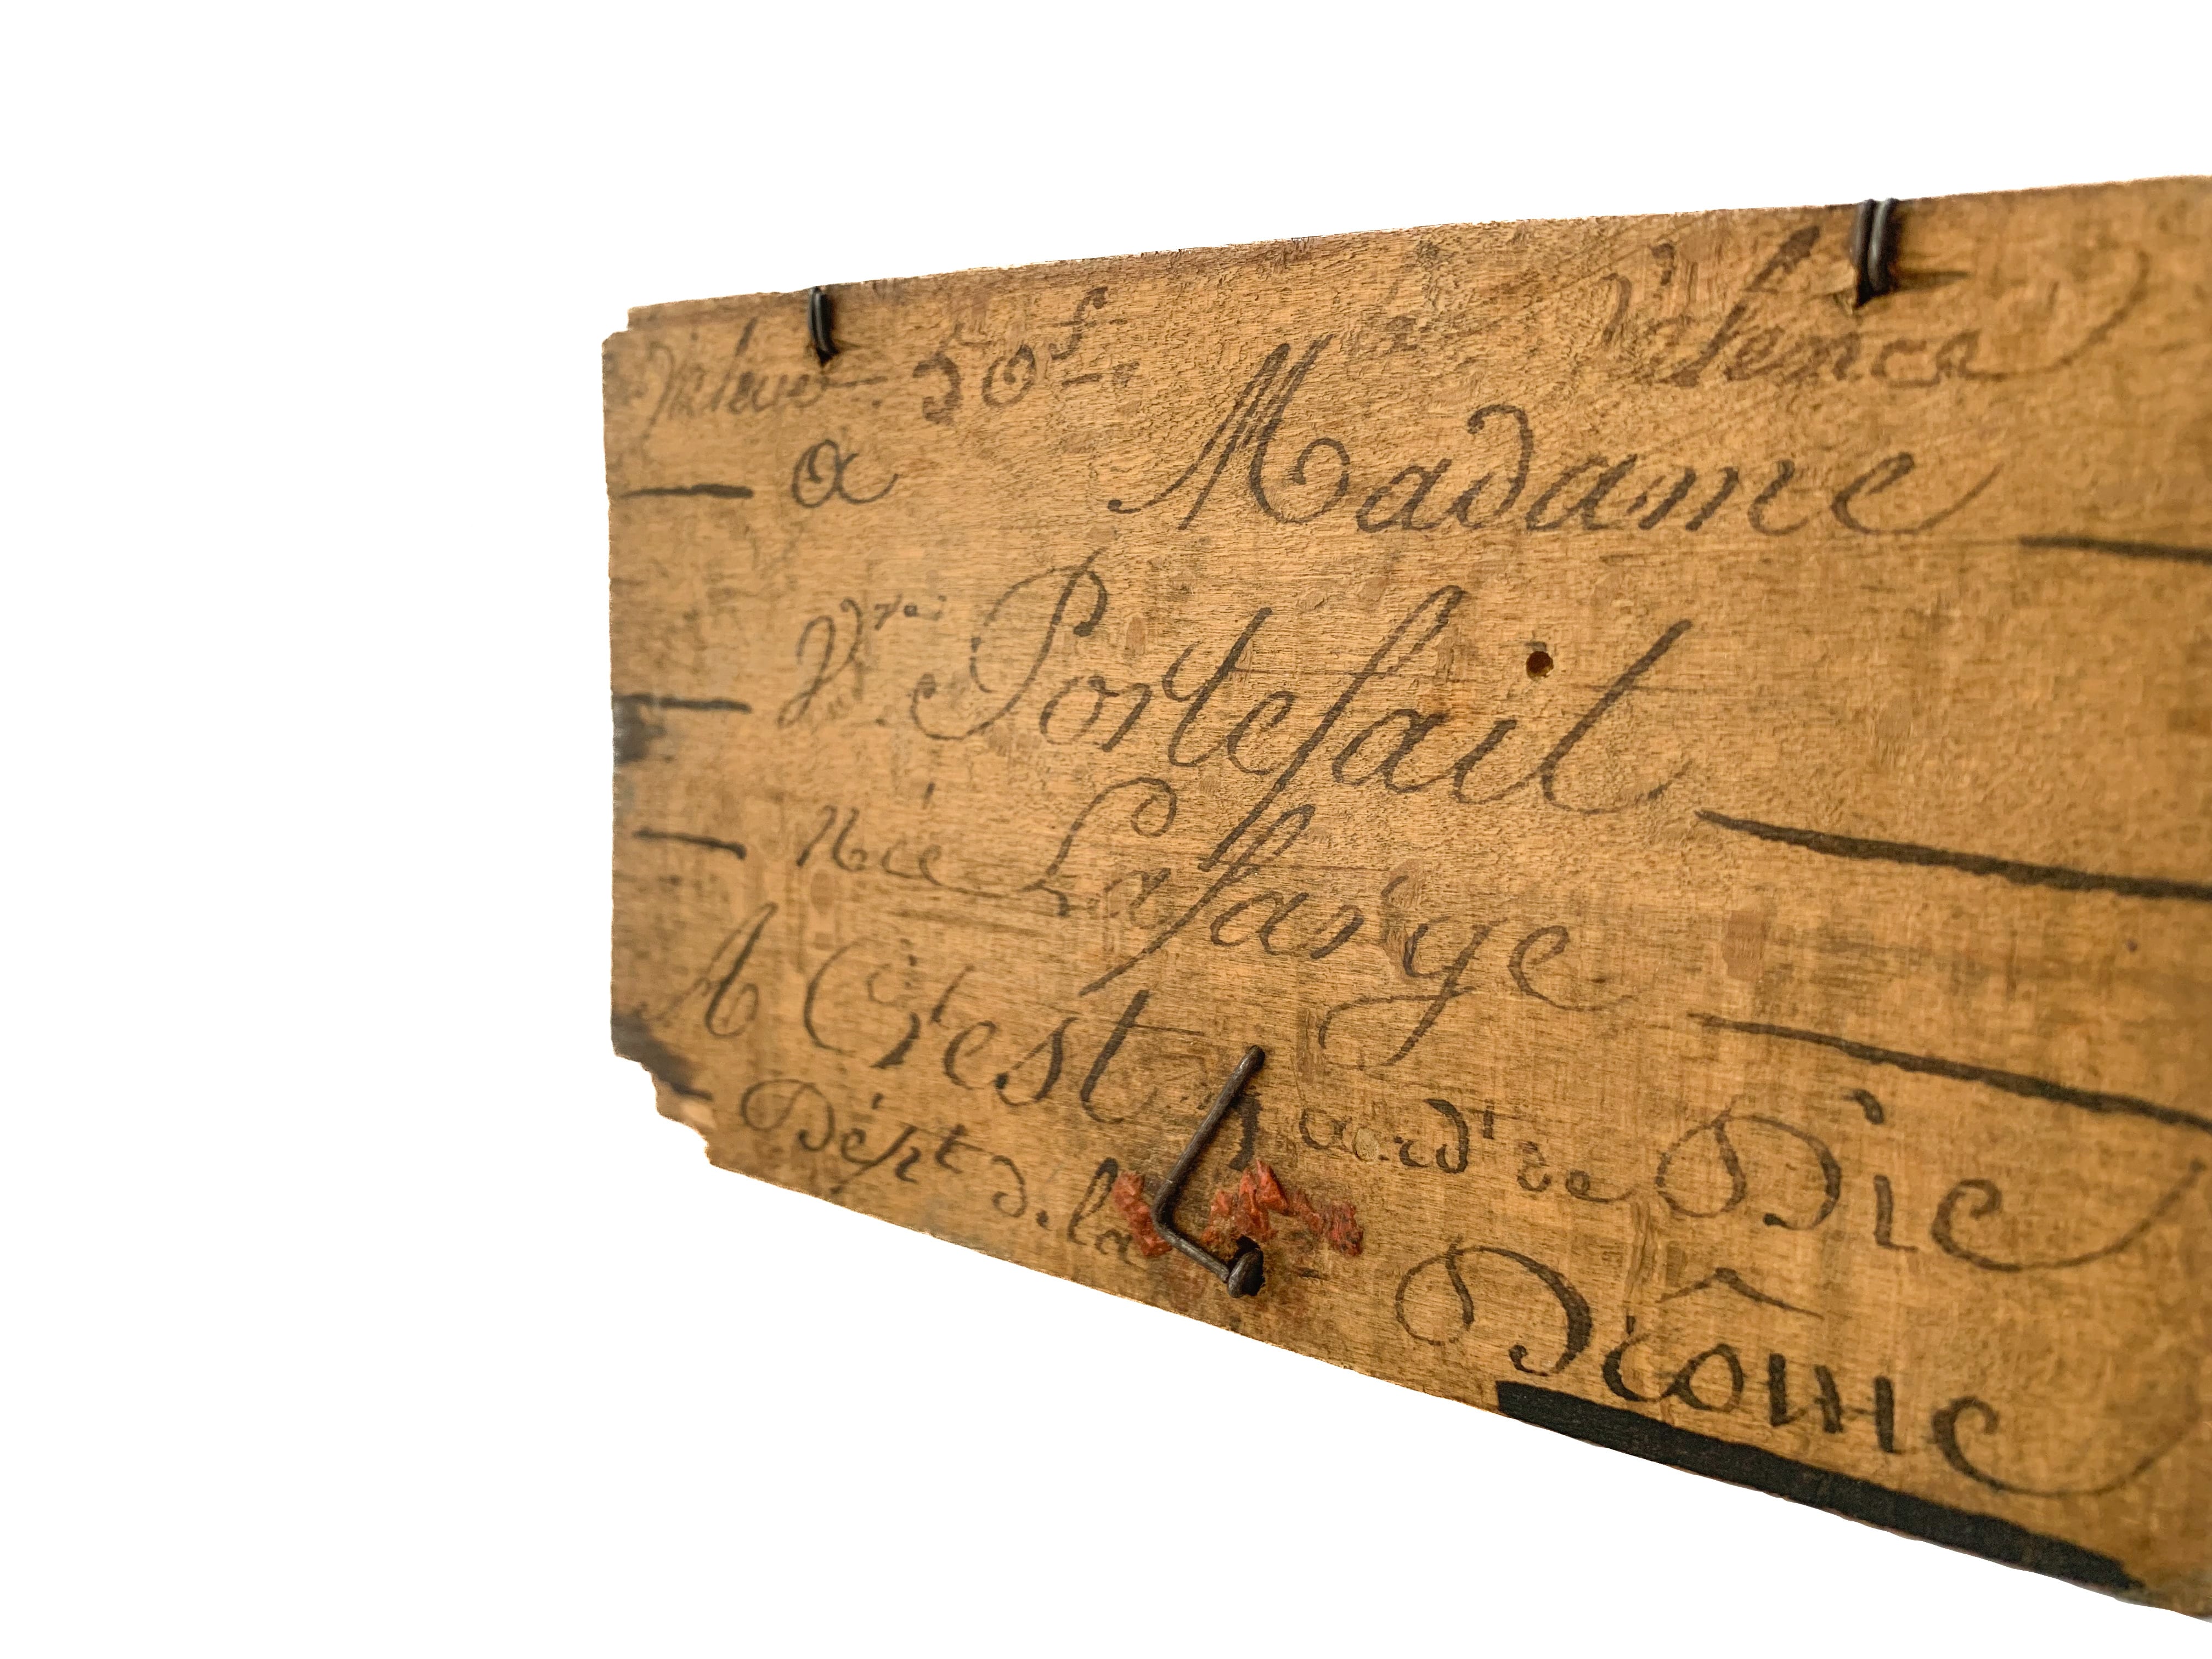 Valeur 50 f à Valence
a Madame
V.ve Portefait
née Lafarge
A Crest ard.t de Die
Dép.t d. la Drôme